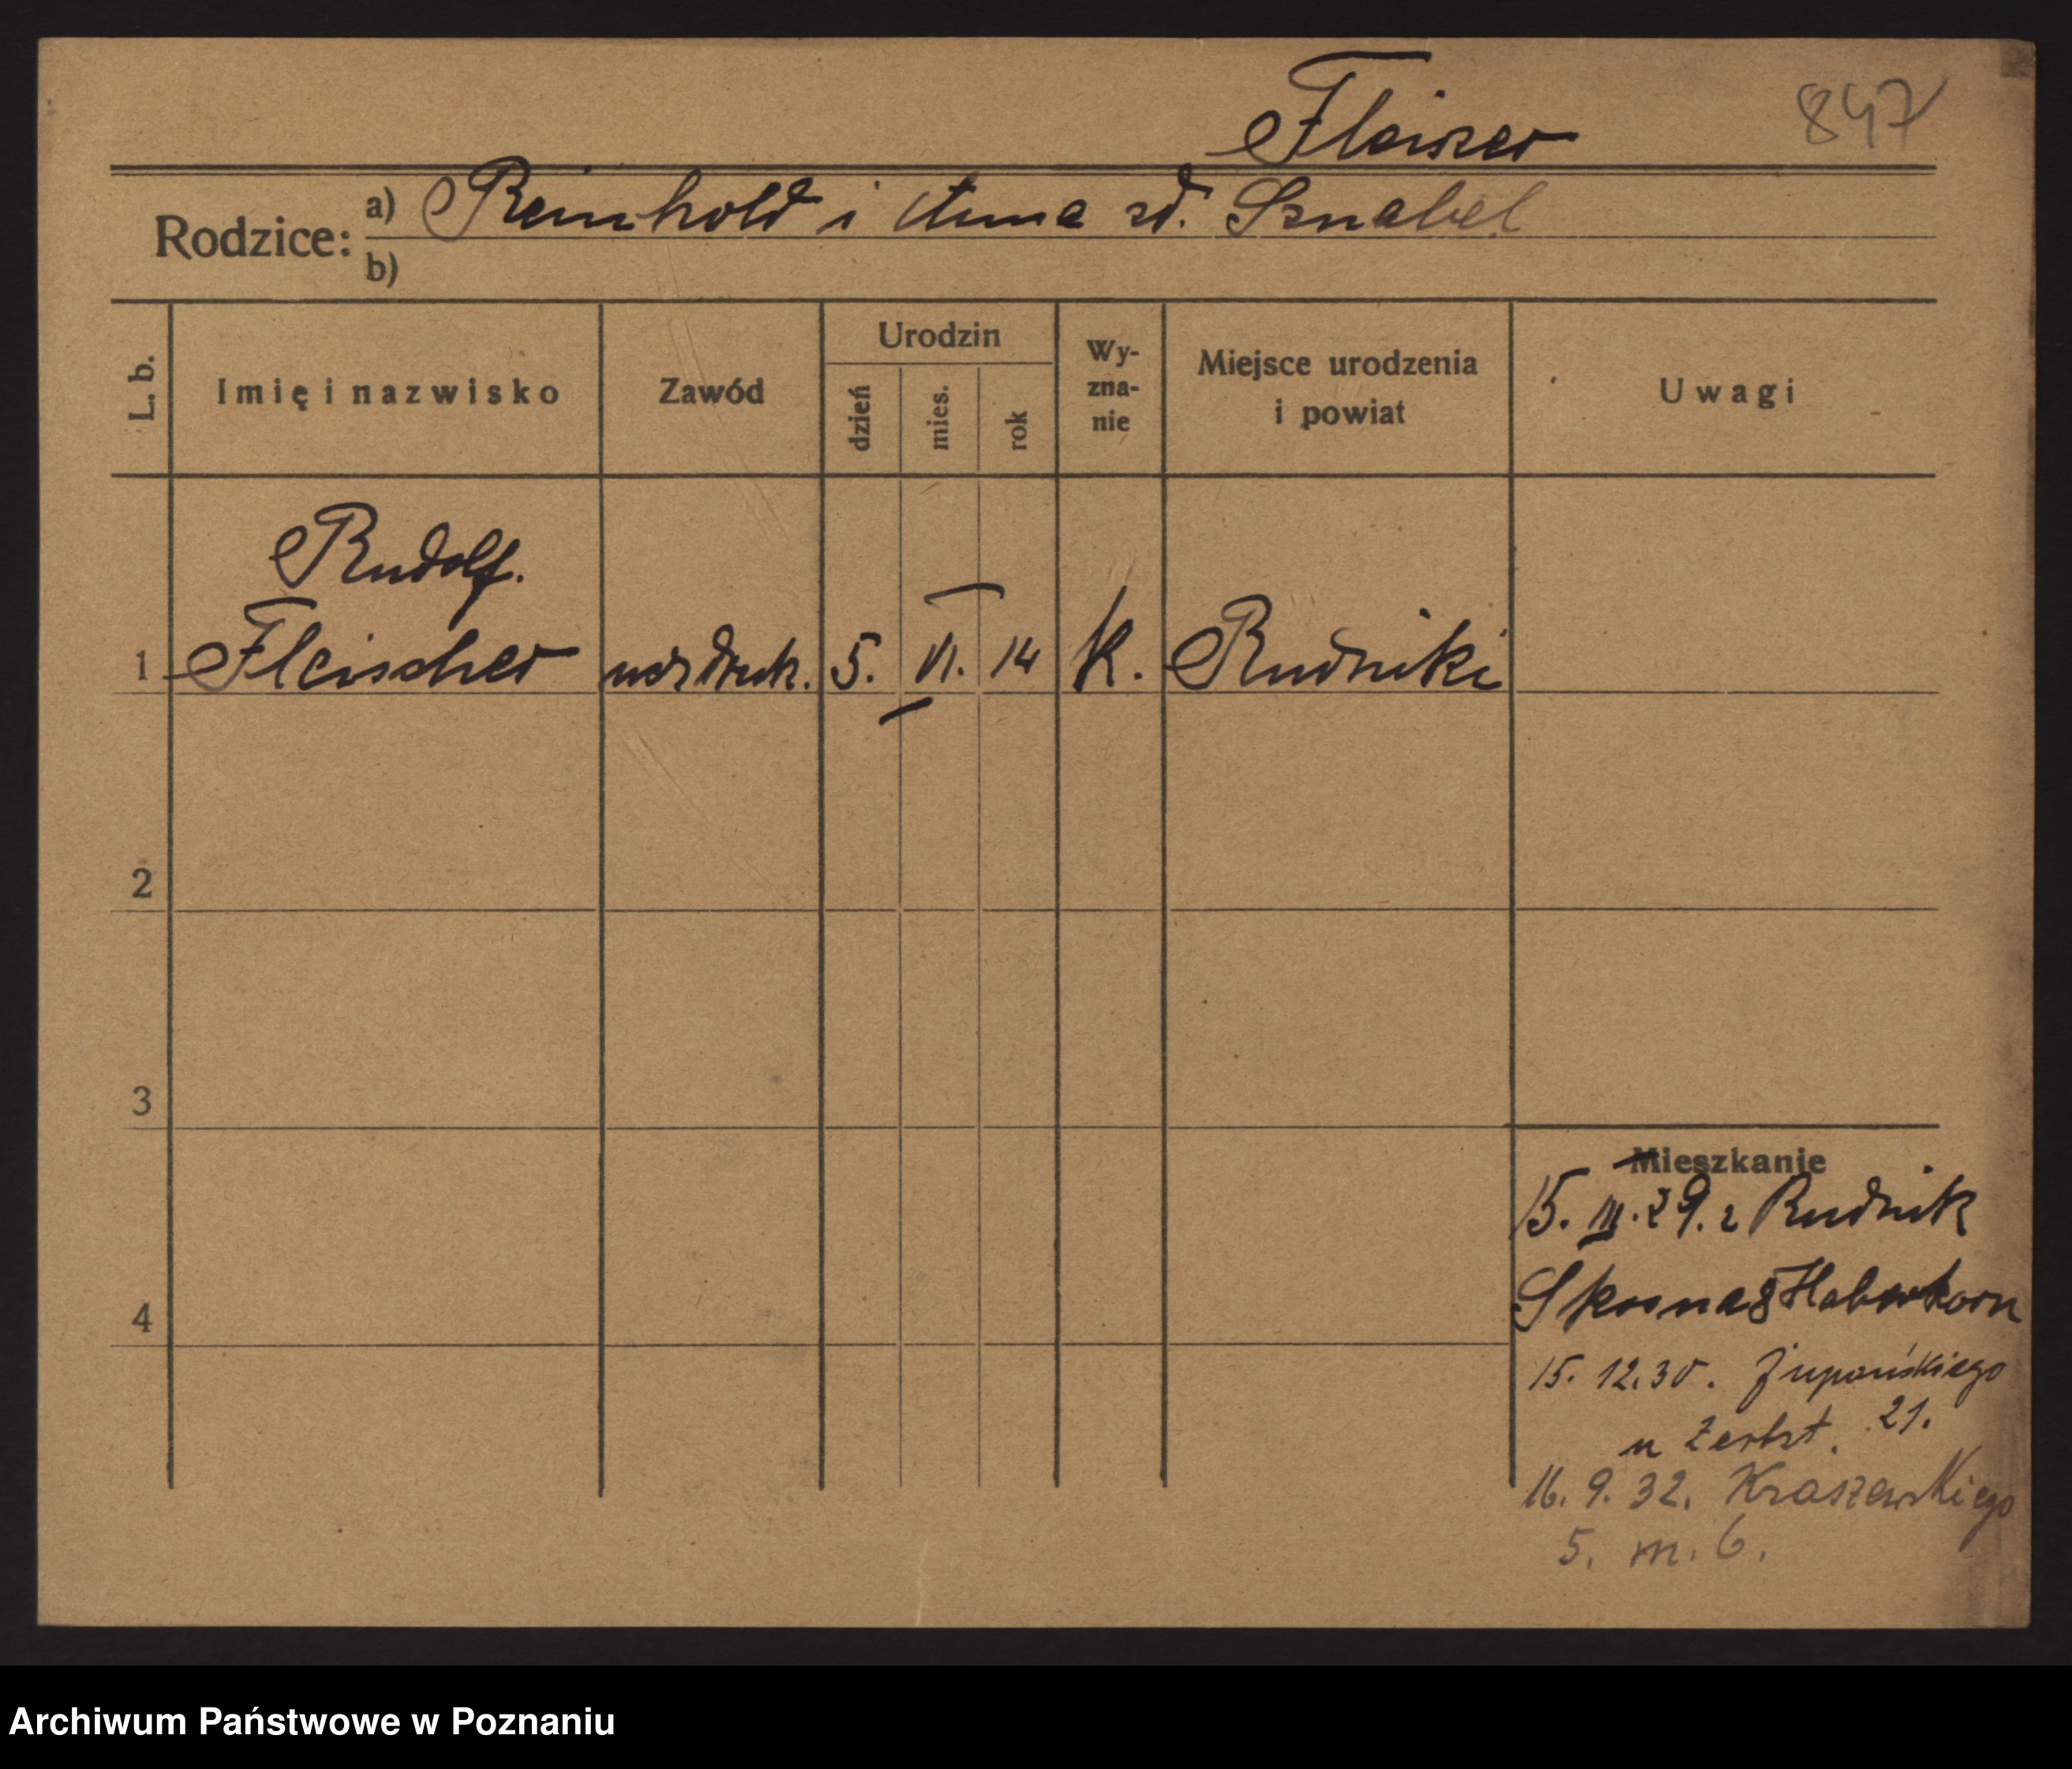 Fleiszer
847
Rodzice: a) Reinhold i Anna zd. Sznabel
b)
L. b.
Imię i nazwisko
Zawód
Urodzin
dzień
mies.
rok
Wy-
zna-
nie
Miejsce urodzenia
i powiat
Uwagi
Rudolf.
1 Fleischer ucz druk. 5. VI. 14 K. Rudniki
2
3
Mieszkanie
15. III. 29. z Rudnik
4
Skosna 8 Haberkorn
15. 12. 30. Żupańskiego
u Zerbst. 21.
16. 9. 32. Kraszewskiego
5. m. 6.
Archiwum Państwowe w Poznaniu